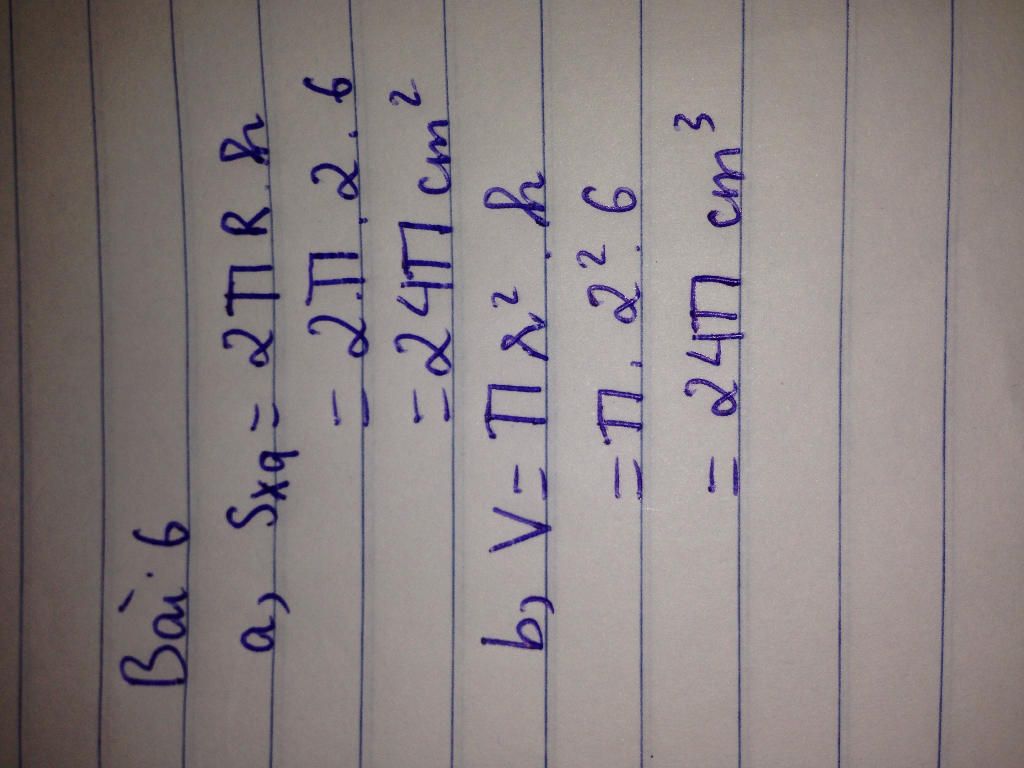 Bài 6
a, Sxq = 2π R.h
= 2.π.2.6
= 24π cm²
b, V = π r².h
= π.2².6
= 24π cm³